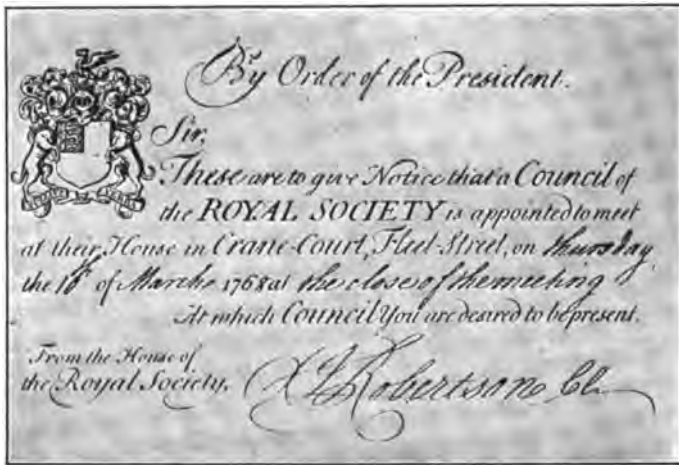 By Order of the President.
Sir,
These are to give Notice that a Council of
the ROYAL SOCIETY is appointed to meet
at their House in Crane-Court, Fleet-Street, on Thursday
the 10th of March 1768 at the close of the meeting
At which Council You are desired to be present.
From the House of
the Royal Society.
Robertson Cl